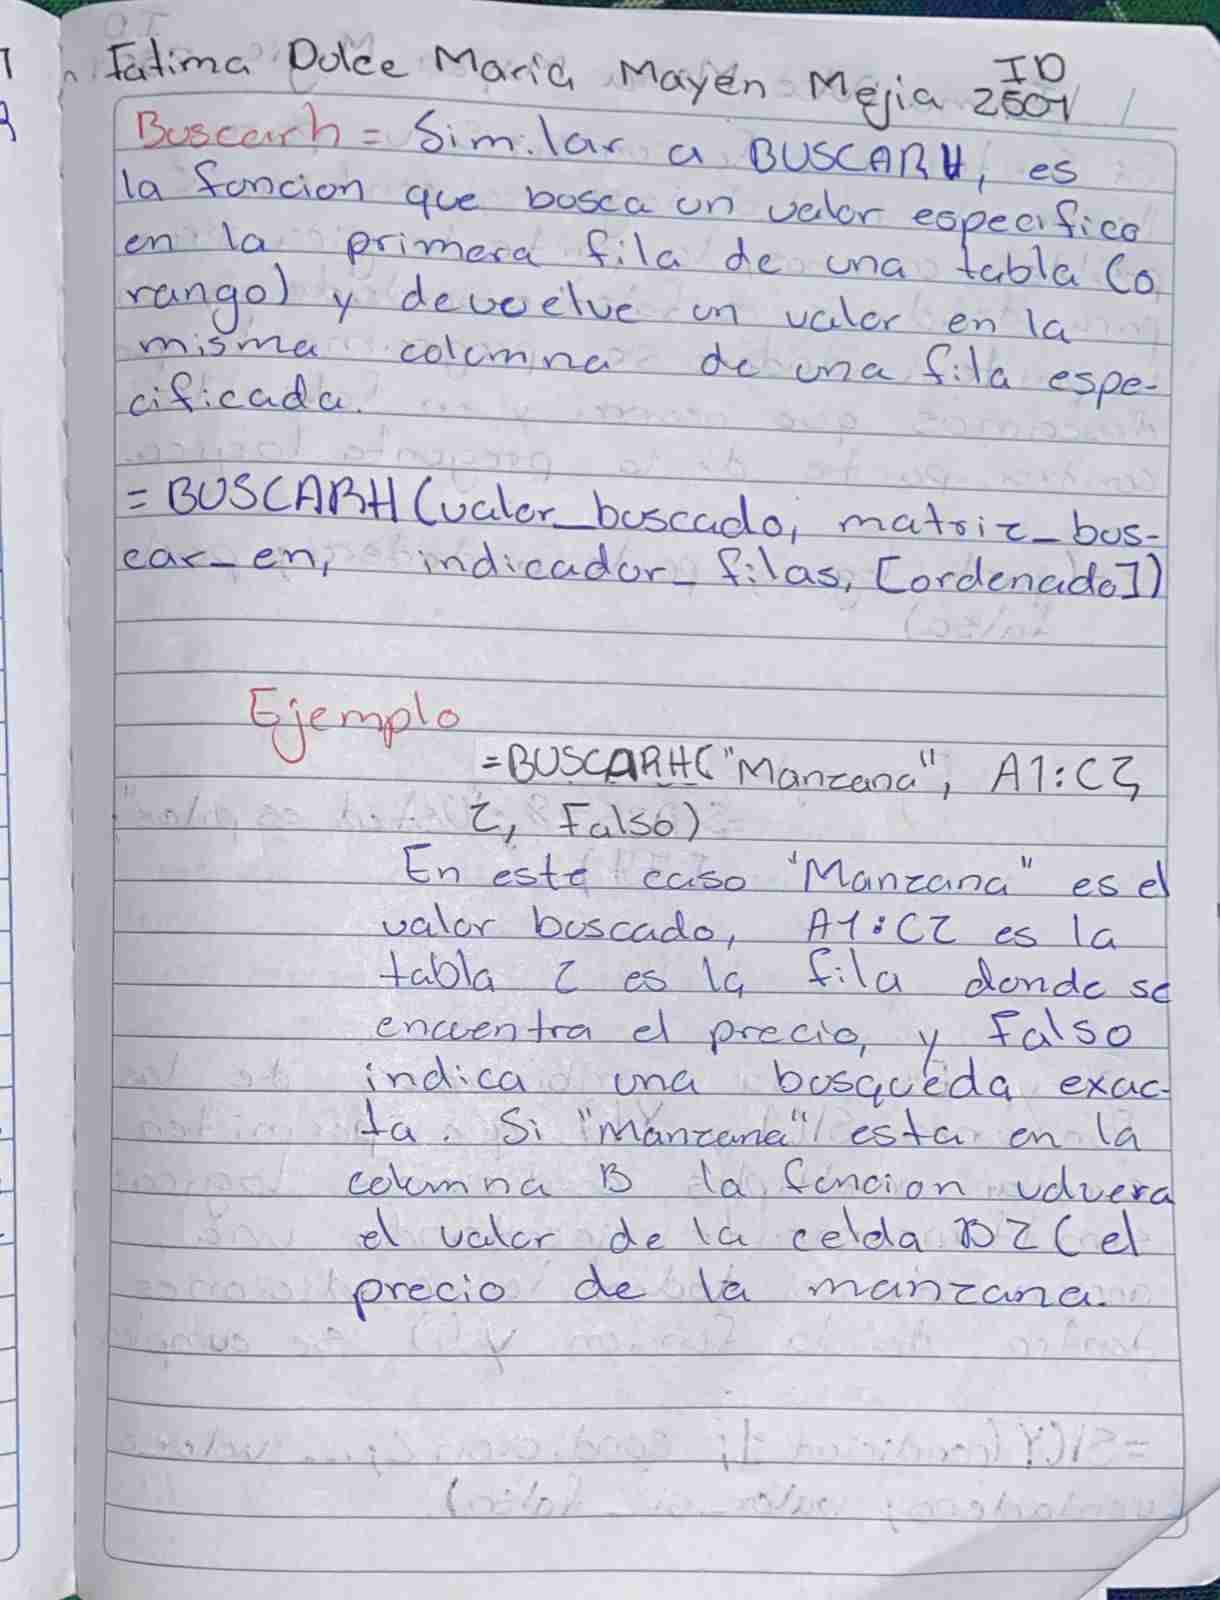 Fatima Dulce Maria Mayén Mejia ID
2501
Buscarh = Similar a BUSCARV, es
la funcion que busca un valor especifico
en la primera fila de una tabla (o
rango) y devuelve un valor en la
misma columna de una fila espe-
cificada.
= BUSCARH (valor_buscado, matriz_bus-
car_en, indicador_filas, [ordenado])
Ejemplo
=BUSCARH("Manzana", A1:C2,
2, Falso)
En este caso "Manzana" es el
valor buscado, A1:C2 es la
tabla 2 es la fila donde se
encuentra el precio, y Falso
indica una busqueda exac-
ta. Si "Manzana" esta en la
columna B la funcion vdvera
el valor de la celda B2 (el
precio de la manzana.